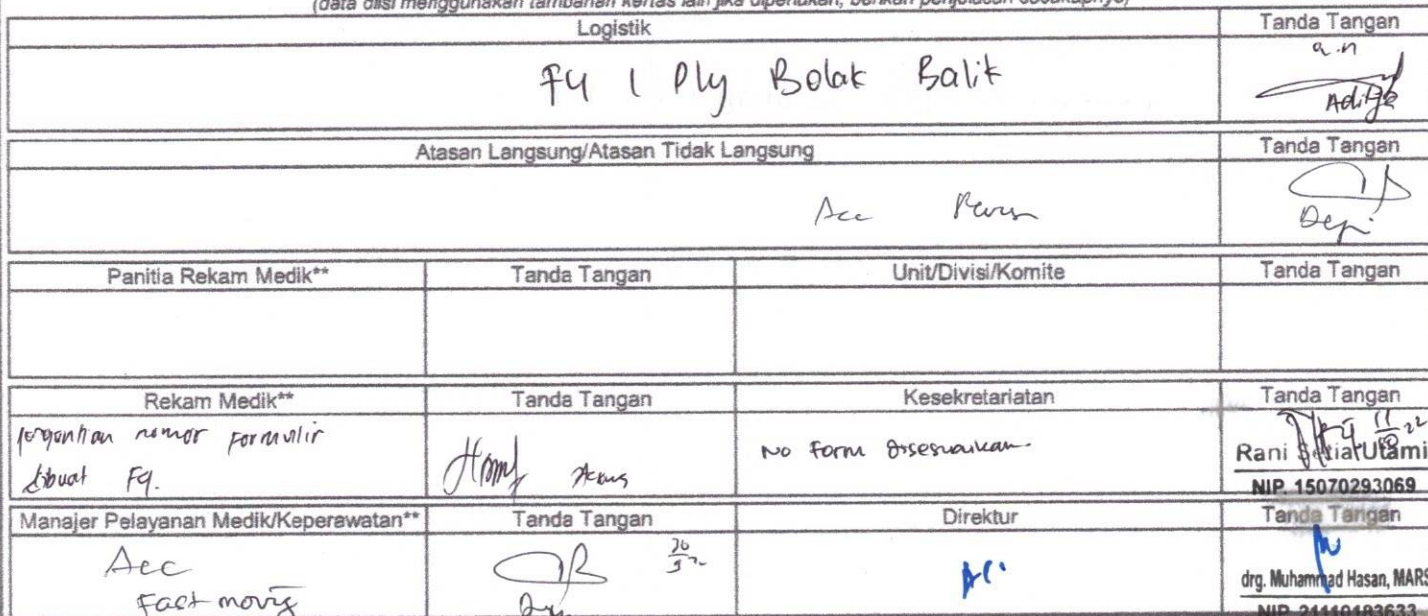 (data diisi menggunakan tambahan kertas lain jika diperlukan, berikan penjelasan secukupnya)
Logistik Tanda Tangan
F4 1 Ply Bolak Balik a.n
Aditya
Atasan Langsung/Atasan Tidak Langsung Tanda Tangan
Acc
Depi
Panitia Rekam Medik** Tanda Tangan Unit/Divisi/Komite Tanda Tangan
Rekam Medik** Tanda Tangan Kesekretariatan Tanda Tangan
pergantian nomor Formulir
dibuat F4.
No Form disesuaikan
Rani Setia Utami
NIP. 15070293069
Manajer Pelayanan Medik/Keperawatan** Tanda Tangan Direktur Tanda Tangan
Acc Acc
Fast moving
drg. Muhammad Hasan, MARS
NIP 21110183633